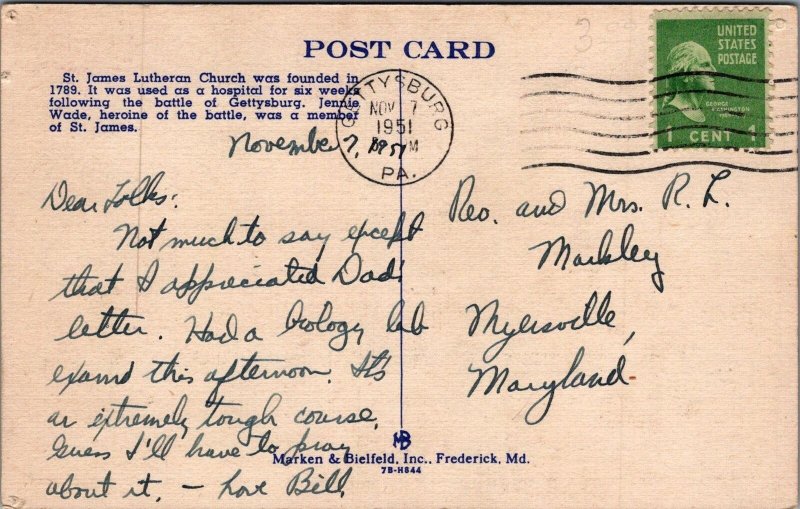 POST CARD
St. James Lutheran Church was founded in
1789. It was used as a hospital for six weeks
following the battle of Gettysburg. Jennie
Wade, heroine of the battle, was a member
of St. James.
GETTYSBURG
NOV 7
1951
M
PA.
UNITED
STATES
POSTAGE
GEORGE
WASHINGTON
1 CENT 1
3
November
7, 1951
Dear Folks:
Not much to say except
that I appreciated Dad's
letter. Had a biology lab
exam this afternoon. It's
an extremely tough course.
Guess I'll have to pray
about it. — Love Bill.
Rev. and Mrs. R. L.
Markley
Myersville,
Maryland
MB
Marken & Bielfeld, Inc., Frederick, Md.
7B-H844